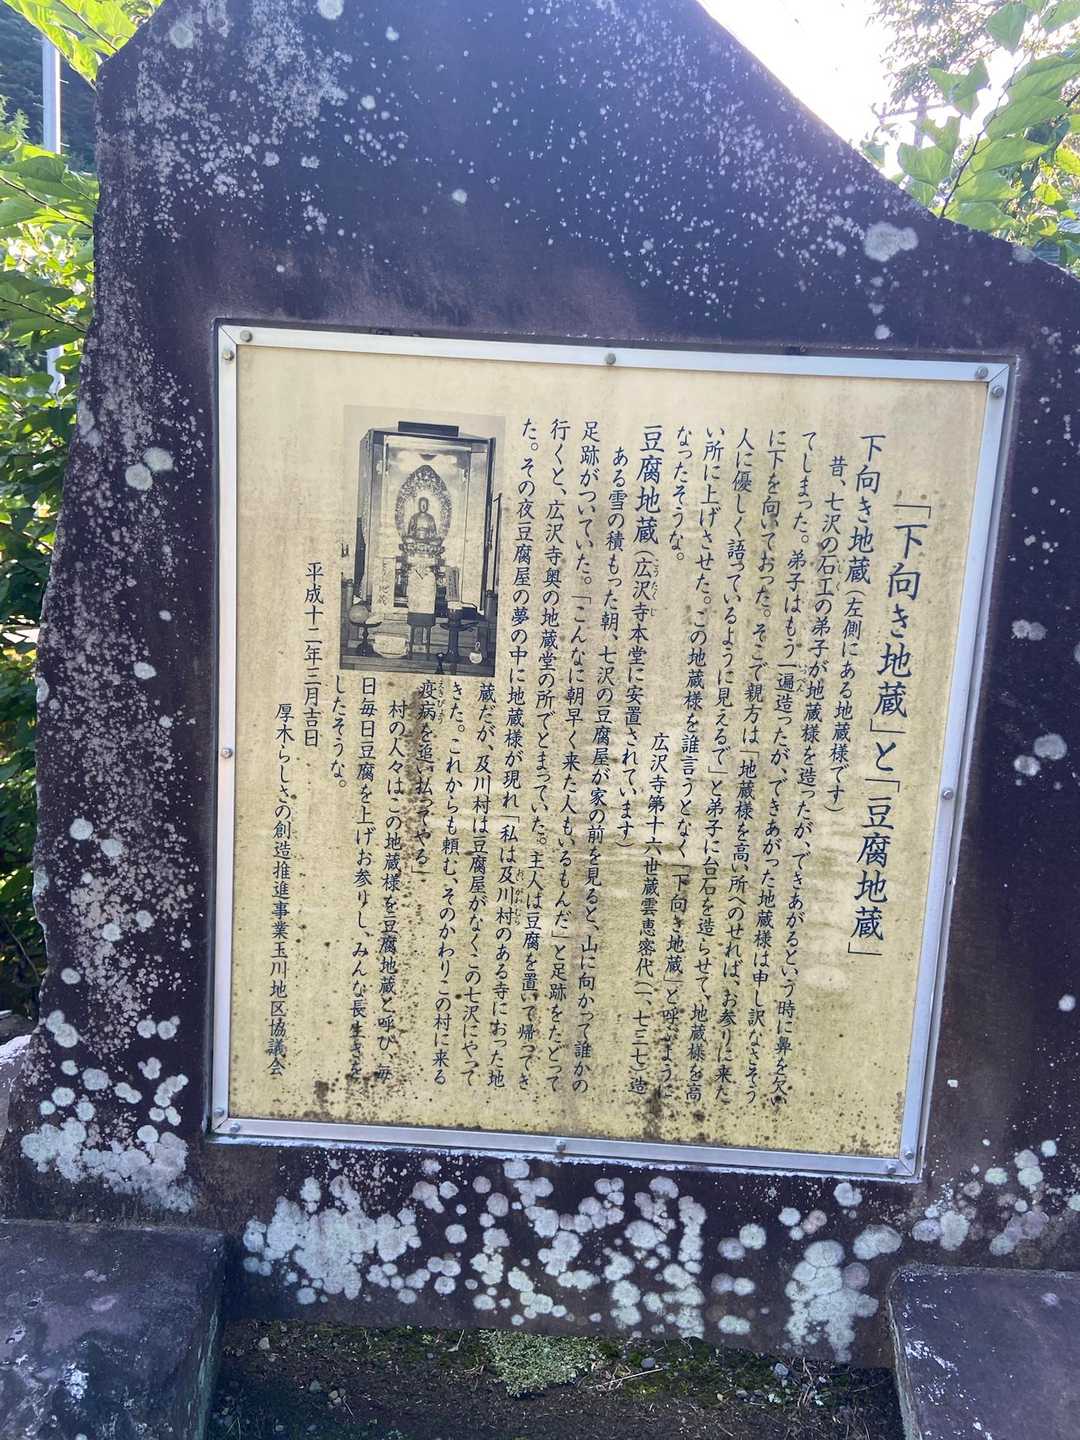 「下向き地蔵」と「豆腐地蔵」
下向き地蔵（左側にある地蔵様です）
昔、七沢の石工の弟子が地蔵様を造ったが、できあがるという時に鼻を欠い
てしまった。弟子はもう一遍造ったが、できあがった地蔵様は申し訳なさそう
に下を向いておった。そこで親方は「地蔵様を高い所へのせれば、お参りに来た
人に優しく語っているように見えるで」と弟子に台石を造らせて、地蔵様を高
い所に上げさせた。この地蔵様を誰言うとなく「下向き地蔵」と呼ぶように
なったそうな。
広沢寺第十六世蔵雲恵密代（一、七三七）造
豆腐地蔵（広沢寺本堂に安置されています）
ある雪の積もった朝、七沢の豆腐屋が家の前を見ると、山に向かって誰かの
足跡がついていた。「こんなに朝早く来た人もいるもんだ」と足跡をたどって
行くと、広沢寺奥の地蔵堂の所でとまっていた。主人は豆腐を置いて帰ってき
た。その夜豆腐屋の夢の中に地蔵様が現れ「私は及川村のある寺におった地
蔵だが、及川村は豆腐屋がなくこの七沢にやって
きた。これからも頼む、そのかわりこの村に来る
疫病を追い払ってやる」
村の人々はこの地蔵様を豆腐地蔵と呼び、毎
日毎日豆腐を上げお参りし、みんな長生きを
したそうな。
平成十二年三月吉日
厚木らしさの創造推進事業玉川地区協議会